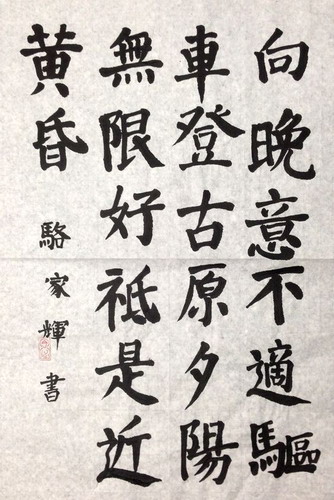 向晚意不適驅
車登古原夕陽
無限好祗是近
黄昏
駱家輝書